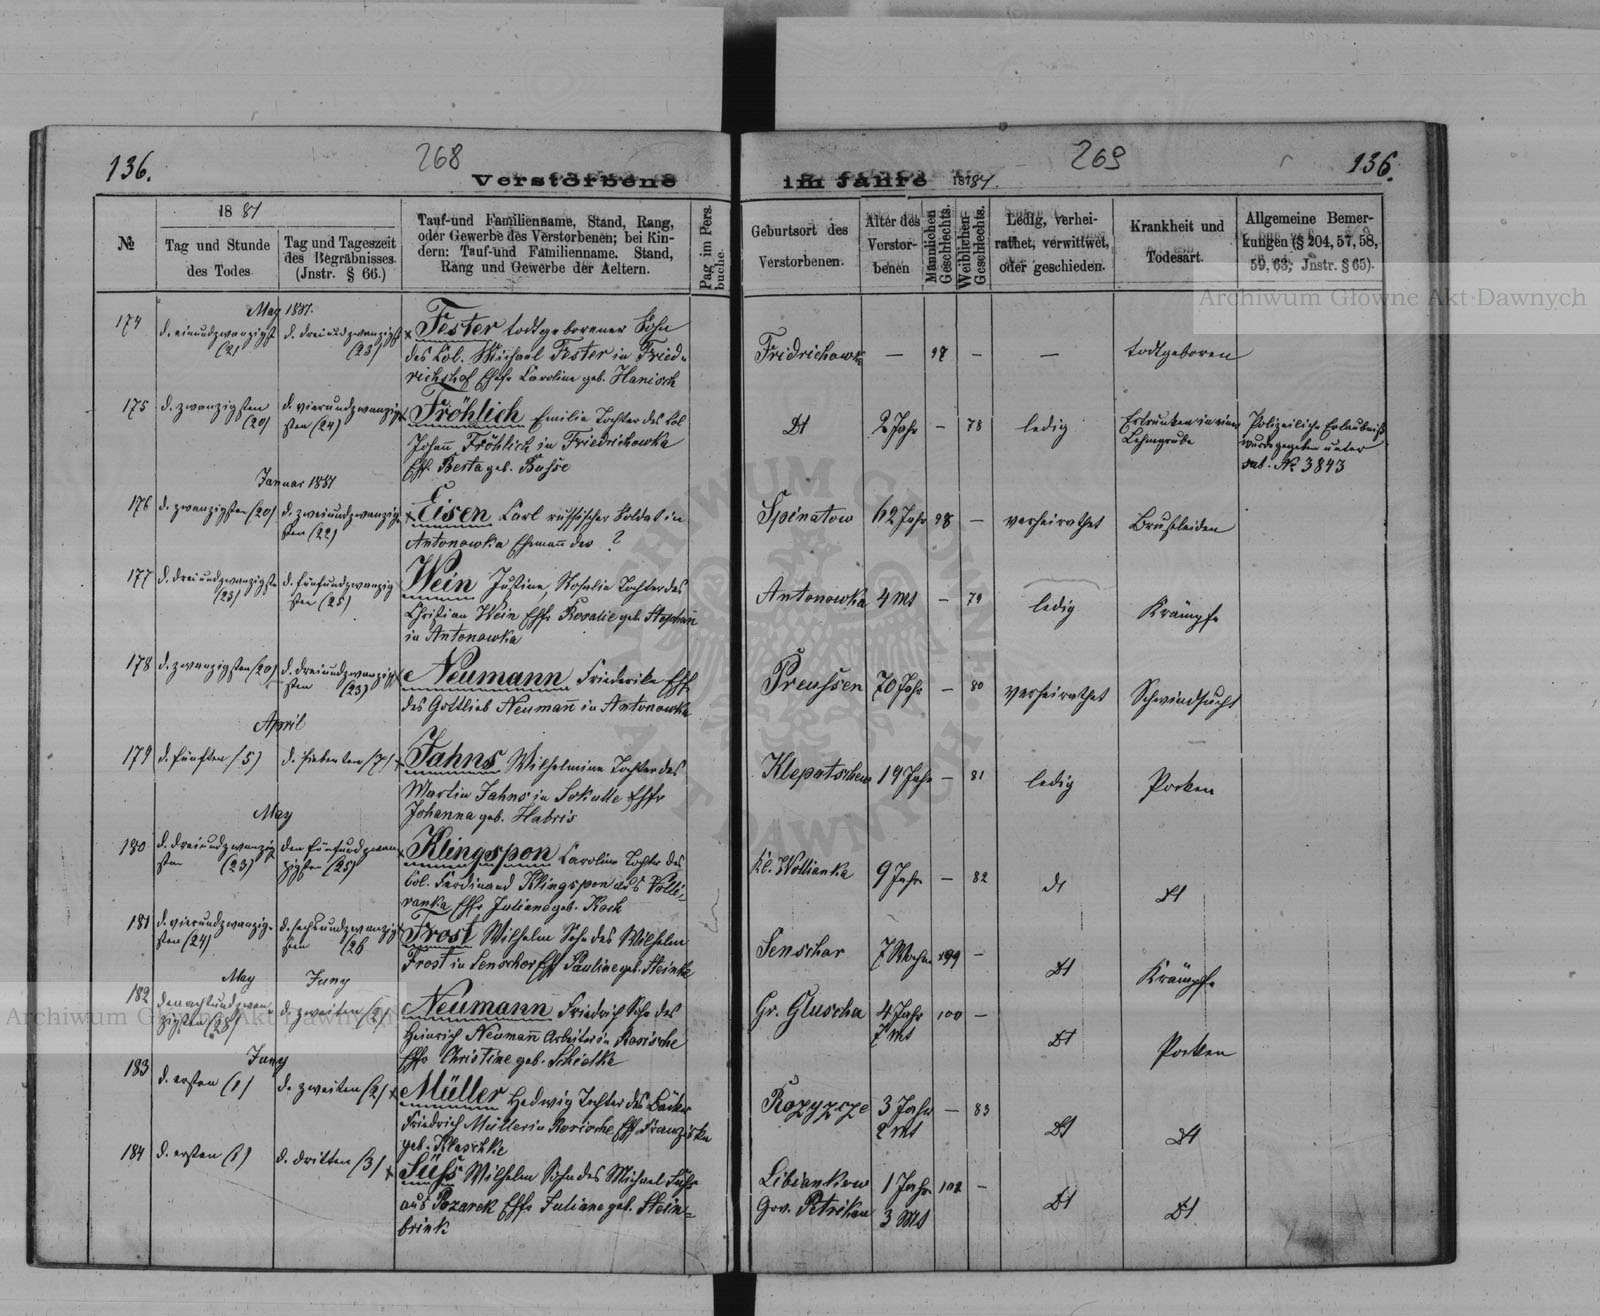 136.
268
Verstorbene
im Jahre 1881.
269
136.
№
1881
Tag und Stunde
des Todes.
Tag und Tageszeit
des Begräbnisses.
(Jnstr. § 66.)
Tauf-und Familienname, Stand, Rang,
oder Gewerbe des Verstorbenen; bei Kin-
dern: Tauf-und Familienname. Stand,
Rang und Gewerbe der Aeltern.
Pag im Pers.
buche.
Geburtsort des
Verstorbenen.
Alter des
Verstor-
benen
Männlichen
Geschlechts.
Weiblichen
Geschlechts.
Ledig, verhei-
rathet, verwittwet,
oder geschieden.
Krankheit und
Todesart.
Allgemeine Bemer-
kungen (§ 204, 57, 58,
59, 63; Jnstr. § 65).
May 1881.
174
d. einundzwanzigst
(21
d. dreiundzwanzigst
(23)
Fester todtgeborener Sohn
des Col. Michael Fester in Fried-
richshof Ehfr Caroline geb. Hanisch
Fridrichowka
—
—
—
todtgeboren
175
d. zwanzigsten
(20)
d. vierundzwanzig
sten (24)
Fröhlich Emilie Tochter des Col
Johann Fröhlich in Friedrichowka
Ehf. Berta geb. Busse
Dt
2 Jahr
—
78
ledig
Ertrunken in einer
Lehmgrube
Polizeiliche Erlaubniß
wurde gegeben unter
№ 3843
Januar 1881
176
d. zwanzigsten (20)
d. zweiundzwanzig
sten (22)
Eisen Carl russischer Soldat in
Antonowka Ehemann der ?
62 Jahr
98
—
verheirathet
Brustleiden
177
d. dreiundzwanzigste
(23)
d. fünfundzwanzig
sten (25)
Wein Justine, Rosalie Tochter des
Christian Wein Ehfr Rosalie geb. Stephan
in Antonowka
Antonowka
4 Mt
—
79
ledig
Krämpfe
178
d. zwanzigsten (20)
d. dreiundzwanzig
sten (23)
Neumann Friederike Ehfr
des Gottlieb Neumann in Antonowka
Preussen
70 Jahr
—
80
verheirathet
Schwindsucht
April
179
d. fünften (5)
d. siebenten (7)
Jahns Wilhelmine Tochter des
Martin Jahns in Sokulle Ehfr
Johanna geb. Habris
19 Jahr
—
81
ledig
Pocken
May
180
d. dreiundzwanzig
sten (23)
den fünfundzwan
zigsten (25)
Klingspon Caroline Tochter des
Col. Ferdinand Klingspon aus
Ehfr Juliane geb. Koch
9 Jahr
—
82
dt
Dt
181
d. vierundzwanzig-
sten (24)
d. sechsundzwanzig
sten (26
Frost Wilhelm Sohn des Wilhelm
Frost in Senschor Ehf Pauline geb. Steinke
Senschar
7 Wochen
99
—
Dt
Krämpfe
May
Juny
182
den achtundzwan-
zigsten (28)
d. zweiten (2)
Neumann Friedrich Sohn des
Heinrich Neumann Arbeiter in Rosische
Ehfr Christine geb. Schielke
Gr. Gluscha
4 Jahr
7 Mt
100
—
Dt
Pocken
Juny
183
d. ersten (1)
d. zweiten (2)
Müller Hedwig Tochter des Bäcker
Friedrich Müller in Rosische Ehf Franziska
geb. Klaschke
3 Jahr
2 Mt
—
83
Dt
Dt
184
d. ersten (1)
d. dritten (3)
Süss Wilhelm Sohn des Michael Süss
aus Pozarek Ehfr Juliane geb. Stein-
brink
Libiankow
Gov. Petrikau
1 Jahr
3 Mt
—
Dt
Dt
Archiwum Główne Akt Dawnych
Archiwum Główne Akt Dawnych
ARCHIWUM GŁÓWNE
AKT DAWNYCH